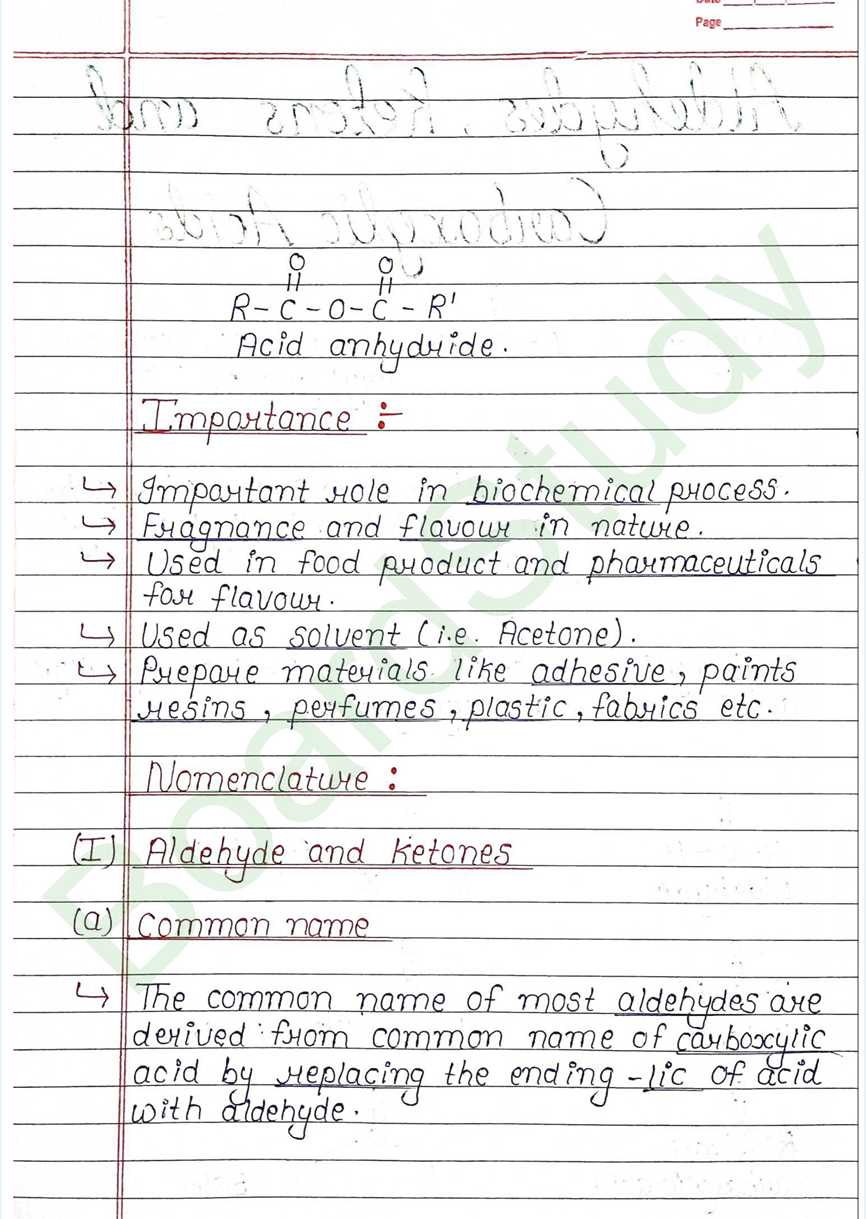 Date
Page
Aldehydes, Ketons and
Carboxylic Acids
O O
R- C - O - C - R'
Acid anhydride.
Importance :-
↳ Important role in biochemical process.
↳ Fragnance and flavour in nature.
↳ Used in food product and pharmaceuticals
for flavour.
↳ Used as solvent (i.e. Acetone).
↳ Prepare materials like adhesive, paints
resins, perfumes, plastic, fabrics etc.
Nomenclature :
(I) Aldehyde and Ketones
(a) Common name
↳ The common name of most aldehydes are
derived from common name of carboxylic
acid by replacing the ending -lic of acid
with aldehyde.
BoardStudy